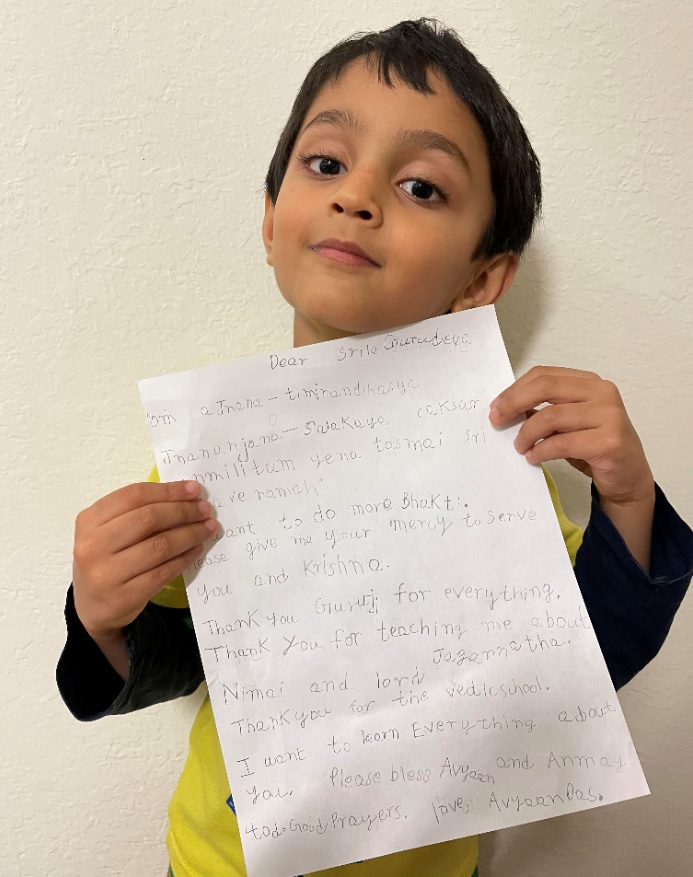 Dear Srila Gurudeva
om aJnana-timirandhasya
Jnananjana-Salakaya caksur
nmilitam yena tasmai Sri
ve namah
want to do more Bhakti.
lease give me your mercy to serve
you and Krishna.
Thank you Guruji for everything.
Thank You for teaching me about
Nimai and lord Jagannatha.
Thank you for the vedic school.
I want to learn Everything about
you. Please bless Avyaan and Anmay
to do Good Prayers. love, Avyaan Das.